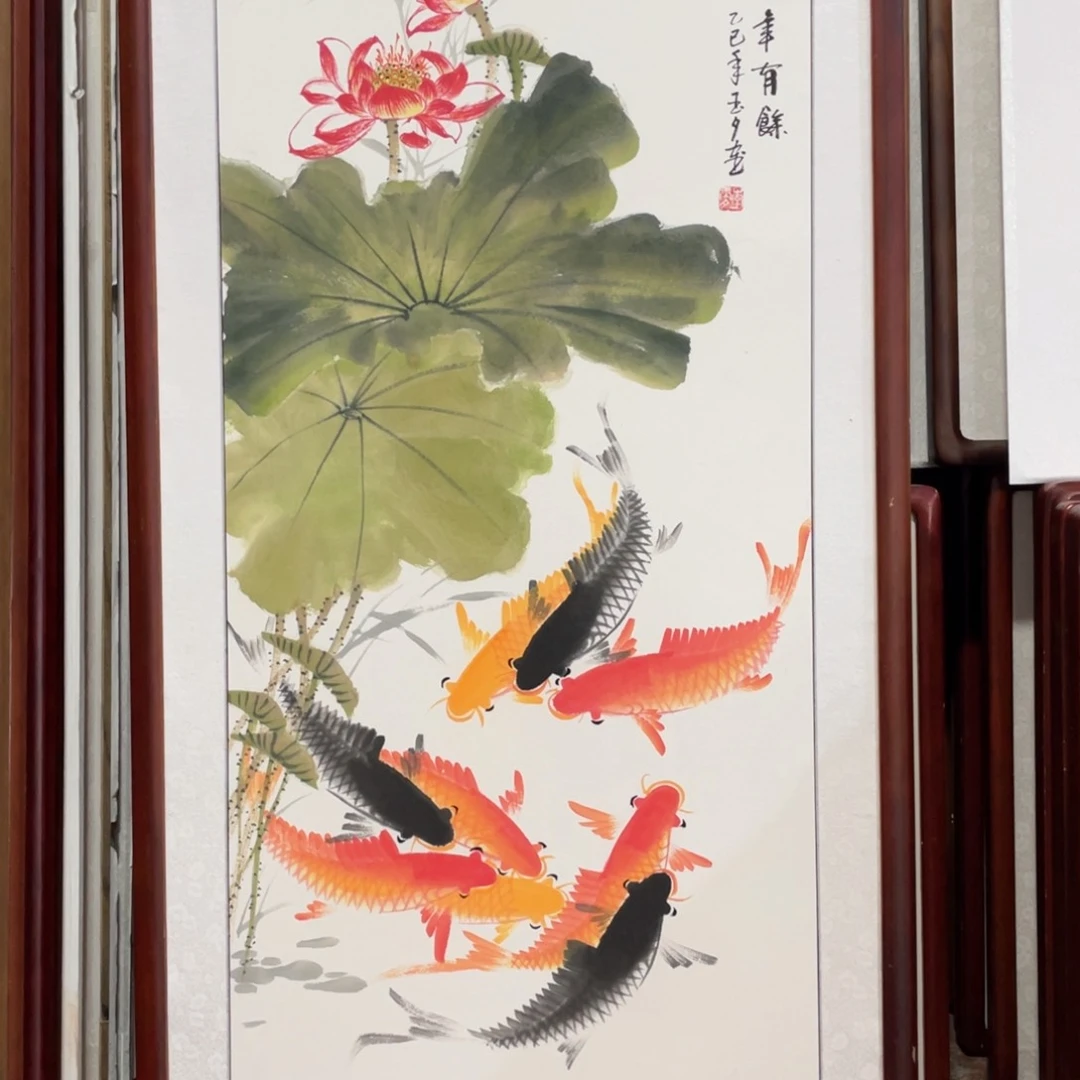 年有餘
乙巳年玉夕画